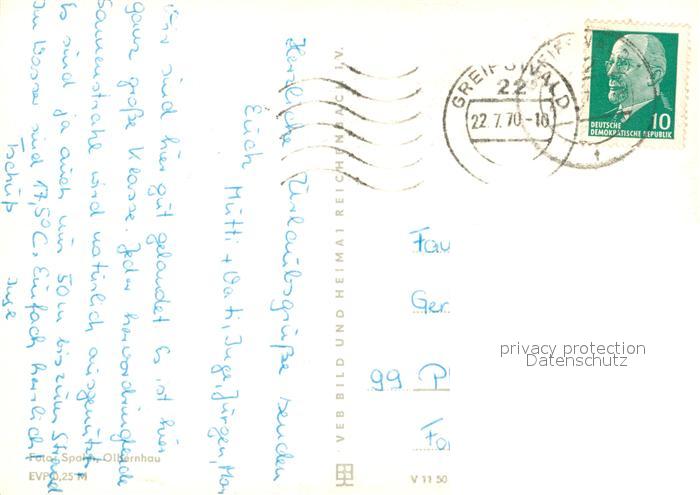 Herzliche Urlaubsgrüße senden
Euch Mutti + Vati, Inge, Jürgen,
Wir sind hier gut gelandet. Es ist hier
ganz große Klasse. Jeder
Sonnenstrahl wird natürlich ausgenützt.
Es sind ja auch nur 50m bis zum Strand
Im Wasser sind 17,5°C. Einfach herrlich!
Tschüß Inge
VEB BILD UND HEIMAT REICHENBACH I. V.
GREIFSWALD
22
22.7.70.-10
DEUTSCHE
DEMOKRATISCHE REPUBLIK
10
Fau
Ger
99 Pl
privacy protection
Datenschutz
Foto: Spahn, Olbernhau
EVP 0,25 M
V 11 50